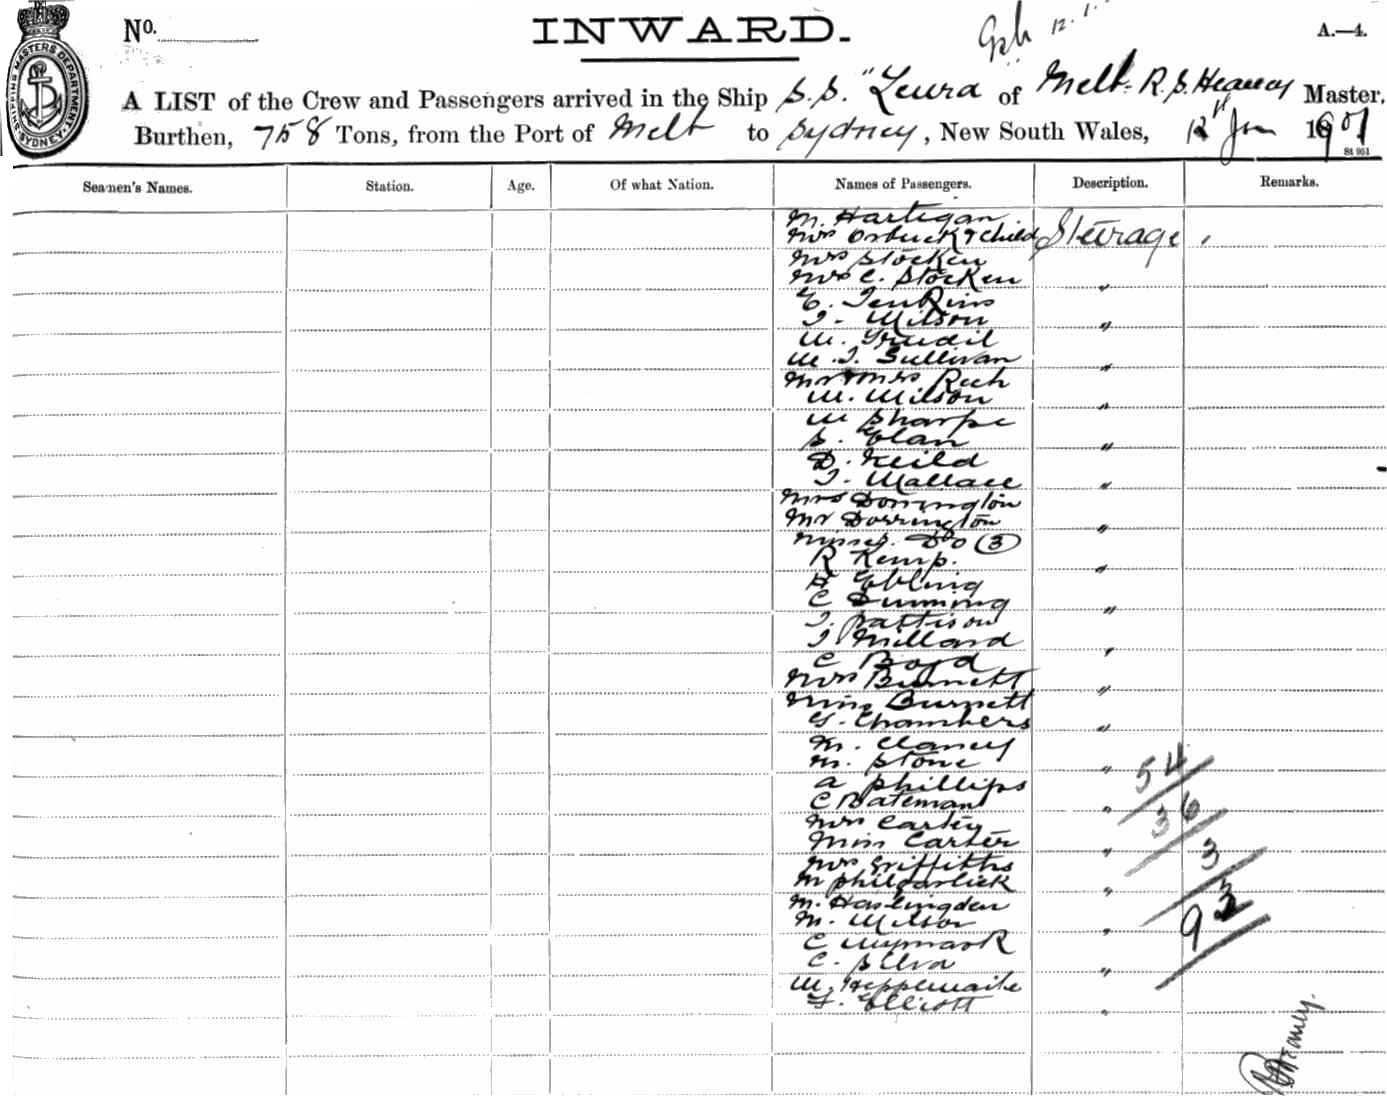 No.
INWARD.
12.1.
A.—4.
SHIPPING MASTERS DEPARTMENT. SYDNEY.
A LIST of the Crew and Passengers arrived in the Ship S.S. "Leura of Melb. R. S. Heaney Master,
Burthen, 758 Tons, from the Port of Melb to Sydney, New South Wales, 12th Jan 1901
St 951
Seamen's Names. Station. Age. Of what Nation. Names of Passengers. Description. Remarks.
M. Hartigan
Mrs Orbuck & child Steerage
Mrs Stocken
Mrs C. Stocken "
E. Jenkins
J. Wilson "
W. Grudil
W. J. Sullivan "
Mr & Mrs Rich
W. Wilson "
W Sharpe
S. Elan "
D. Neild
J. Wallace "
Mrs Dorrington
Mr Dorrington "
Misses. Do (3)
R Kemp. "
A Ebling
C Dunning "
J. Pattison
J Millard "
C Boyd
Mrs Burnett "
Miss Burnett
G. Chambers "
M. Clancy
M. Stone "
A Phillips
C Bateman "
Mrs Carter
Miss Carter "
Mrs Griffiths
M Philgarlick "
M. Haslingden
M. Wilson "
C Wymark
C. Silva "
W. Hepplewaite
F. Elliott "
54
36
3
93
Heaney.